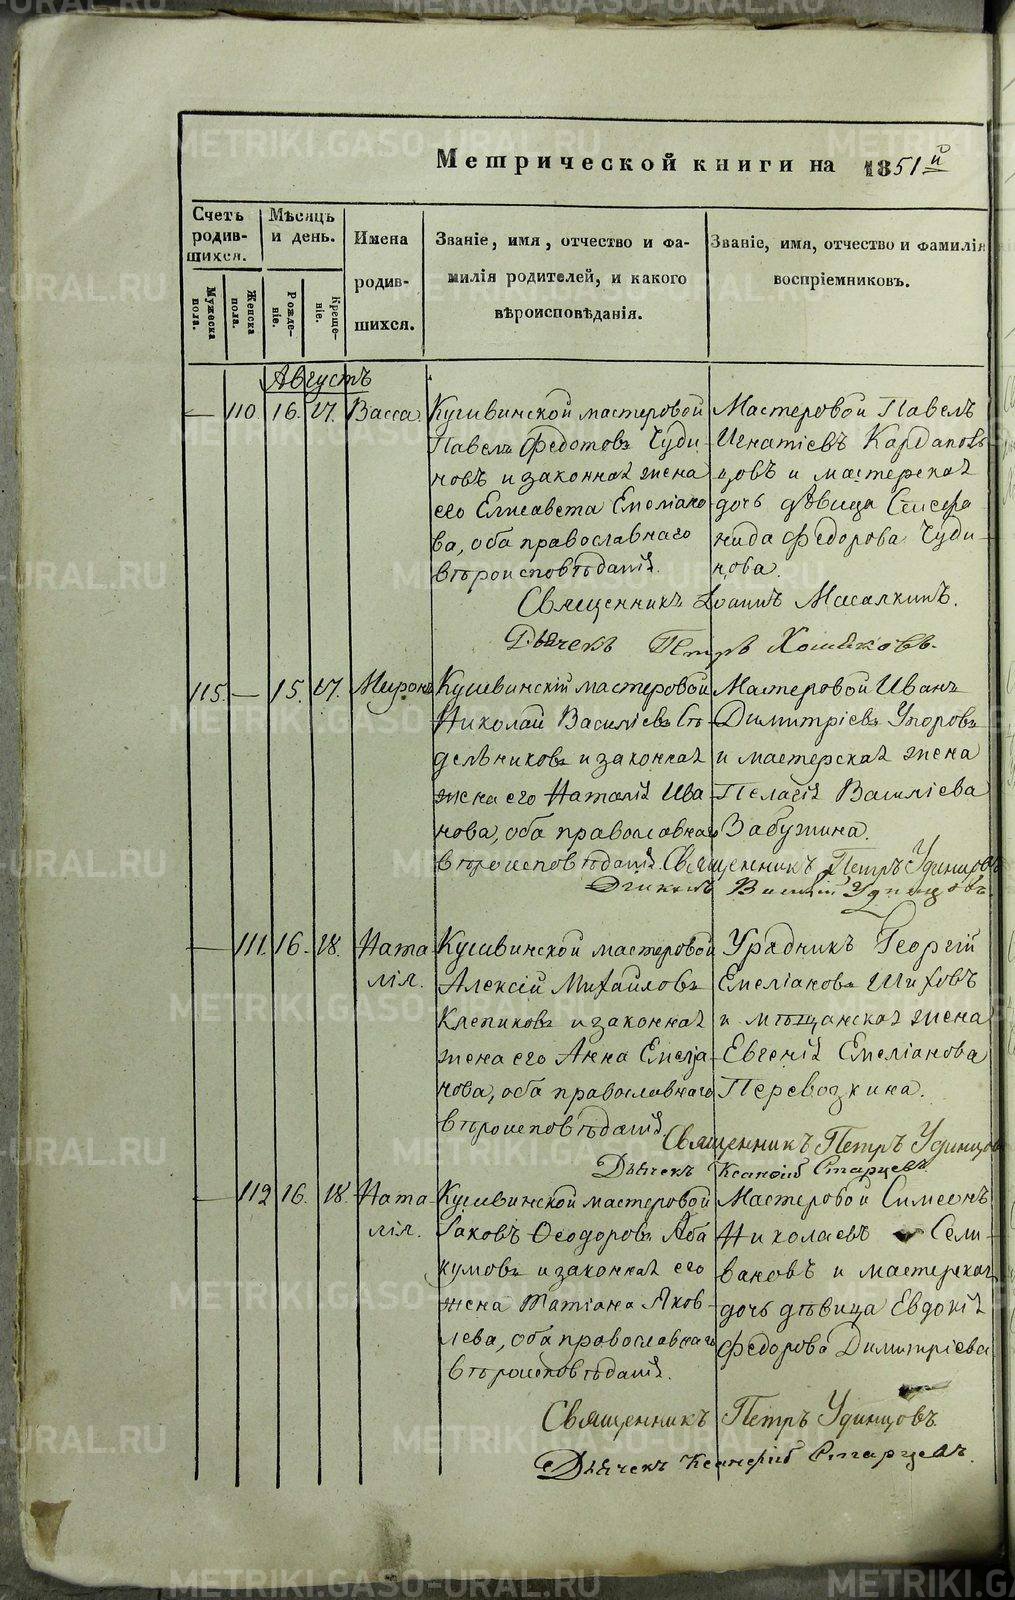 Метрической книги на 1851й
Счетъ родив-шихся.
Мѣсяцъ и день.
Имена родив-шихся.
Званіе, имя, отчество и фа-
милія родителей, и какого
вѣроисповѣданія.
Званіе, имя, отчество и фамилія
воспріемниковъ.
Мужеска пола.
Женска пола.
Рожде-ніе.
Креще-ніе.
Августъ
— 110. 16. 17. Васса.
Кушвинской мастеровой
Павелъ Федотовъ Чуди-
новъ и законная жена
его Елисавета Емеліано-
ва, оба православнаго
вѣроисповѣданія.
Мастеровой Павелъ
Игнатіевъ Кардапол-
цовъ и мастерская
дочь дѣвица Синсфа-
нида Федорова Чуди-
нова.
Священникъ Іоаннъ Масалкинъ.
Дьячекъ Петръ Хомяковъ.
115. — 15. 17. Миронъ
Кушвинскій мастеровой
Николай Василіевъ Сѣ-
дельниковъ и законная
жена его Наталія Ива-
нова, оба православнаго
вѣроисповѣданія.
Мастеровой Иванъ
Димитріевъ Упоровъ
и мастерская жена
Пелагія Василіева
Забужина.
Священникъ Петръ Удинцовъ
Діаконъ Василій Удинцовъ.
— 111. 16. 18. Ната
лія.
Кушвинской мастеровой
Алексій Михайловъ
Клепиковъ и законная
жена его Анна Емеліа-
нова, оба православнаго
вѣроисповѣданія
Урядникъ Георгій
Емеліановъ Шиховъ
и мѣщанская жена
Евгенія Емеліанова
Перевозкина.
Священникъ Петръ Удинцовъ
Дьячекъ Ксанфій Старцевъ.
— 112 16. 18. Ната
лія.
Кушвинской мастеровой
Іаковъ Феодоровъ Аба
кумовъ и законная его
жена Татіана Яков-
лева, оба православнаго
вѣроисповѣданія.
Мастеровой Симеонъ
Николаевъ Сели-
вановъ и мастерская
дочь дѣвица Евдокія
Федорова Димитріева
Священникъ Петръ Удинцовъ.
Дьячекъ Ксанфій Старцевъ.
METRIKI.GASO-URAL.RU